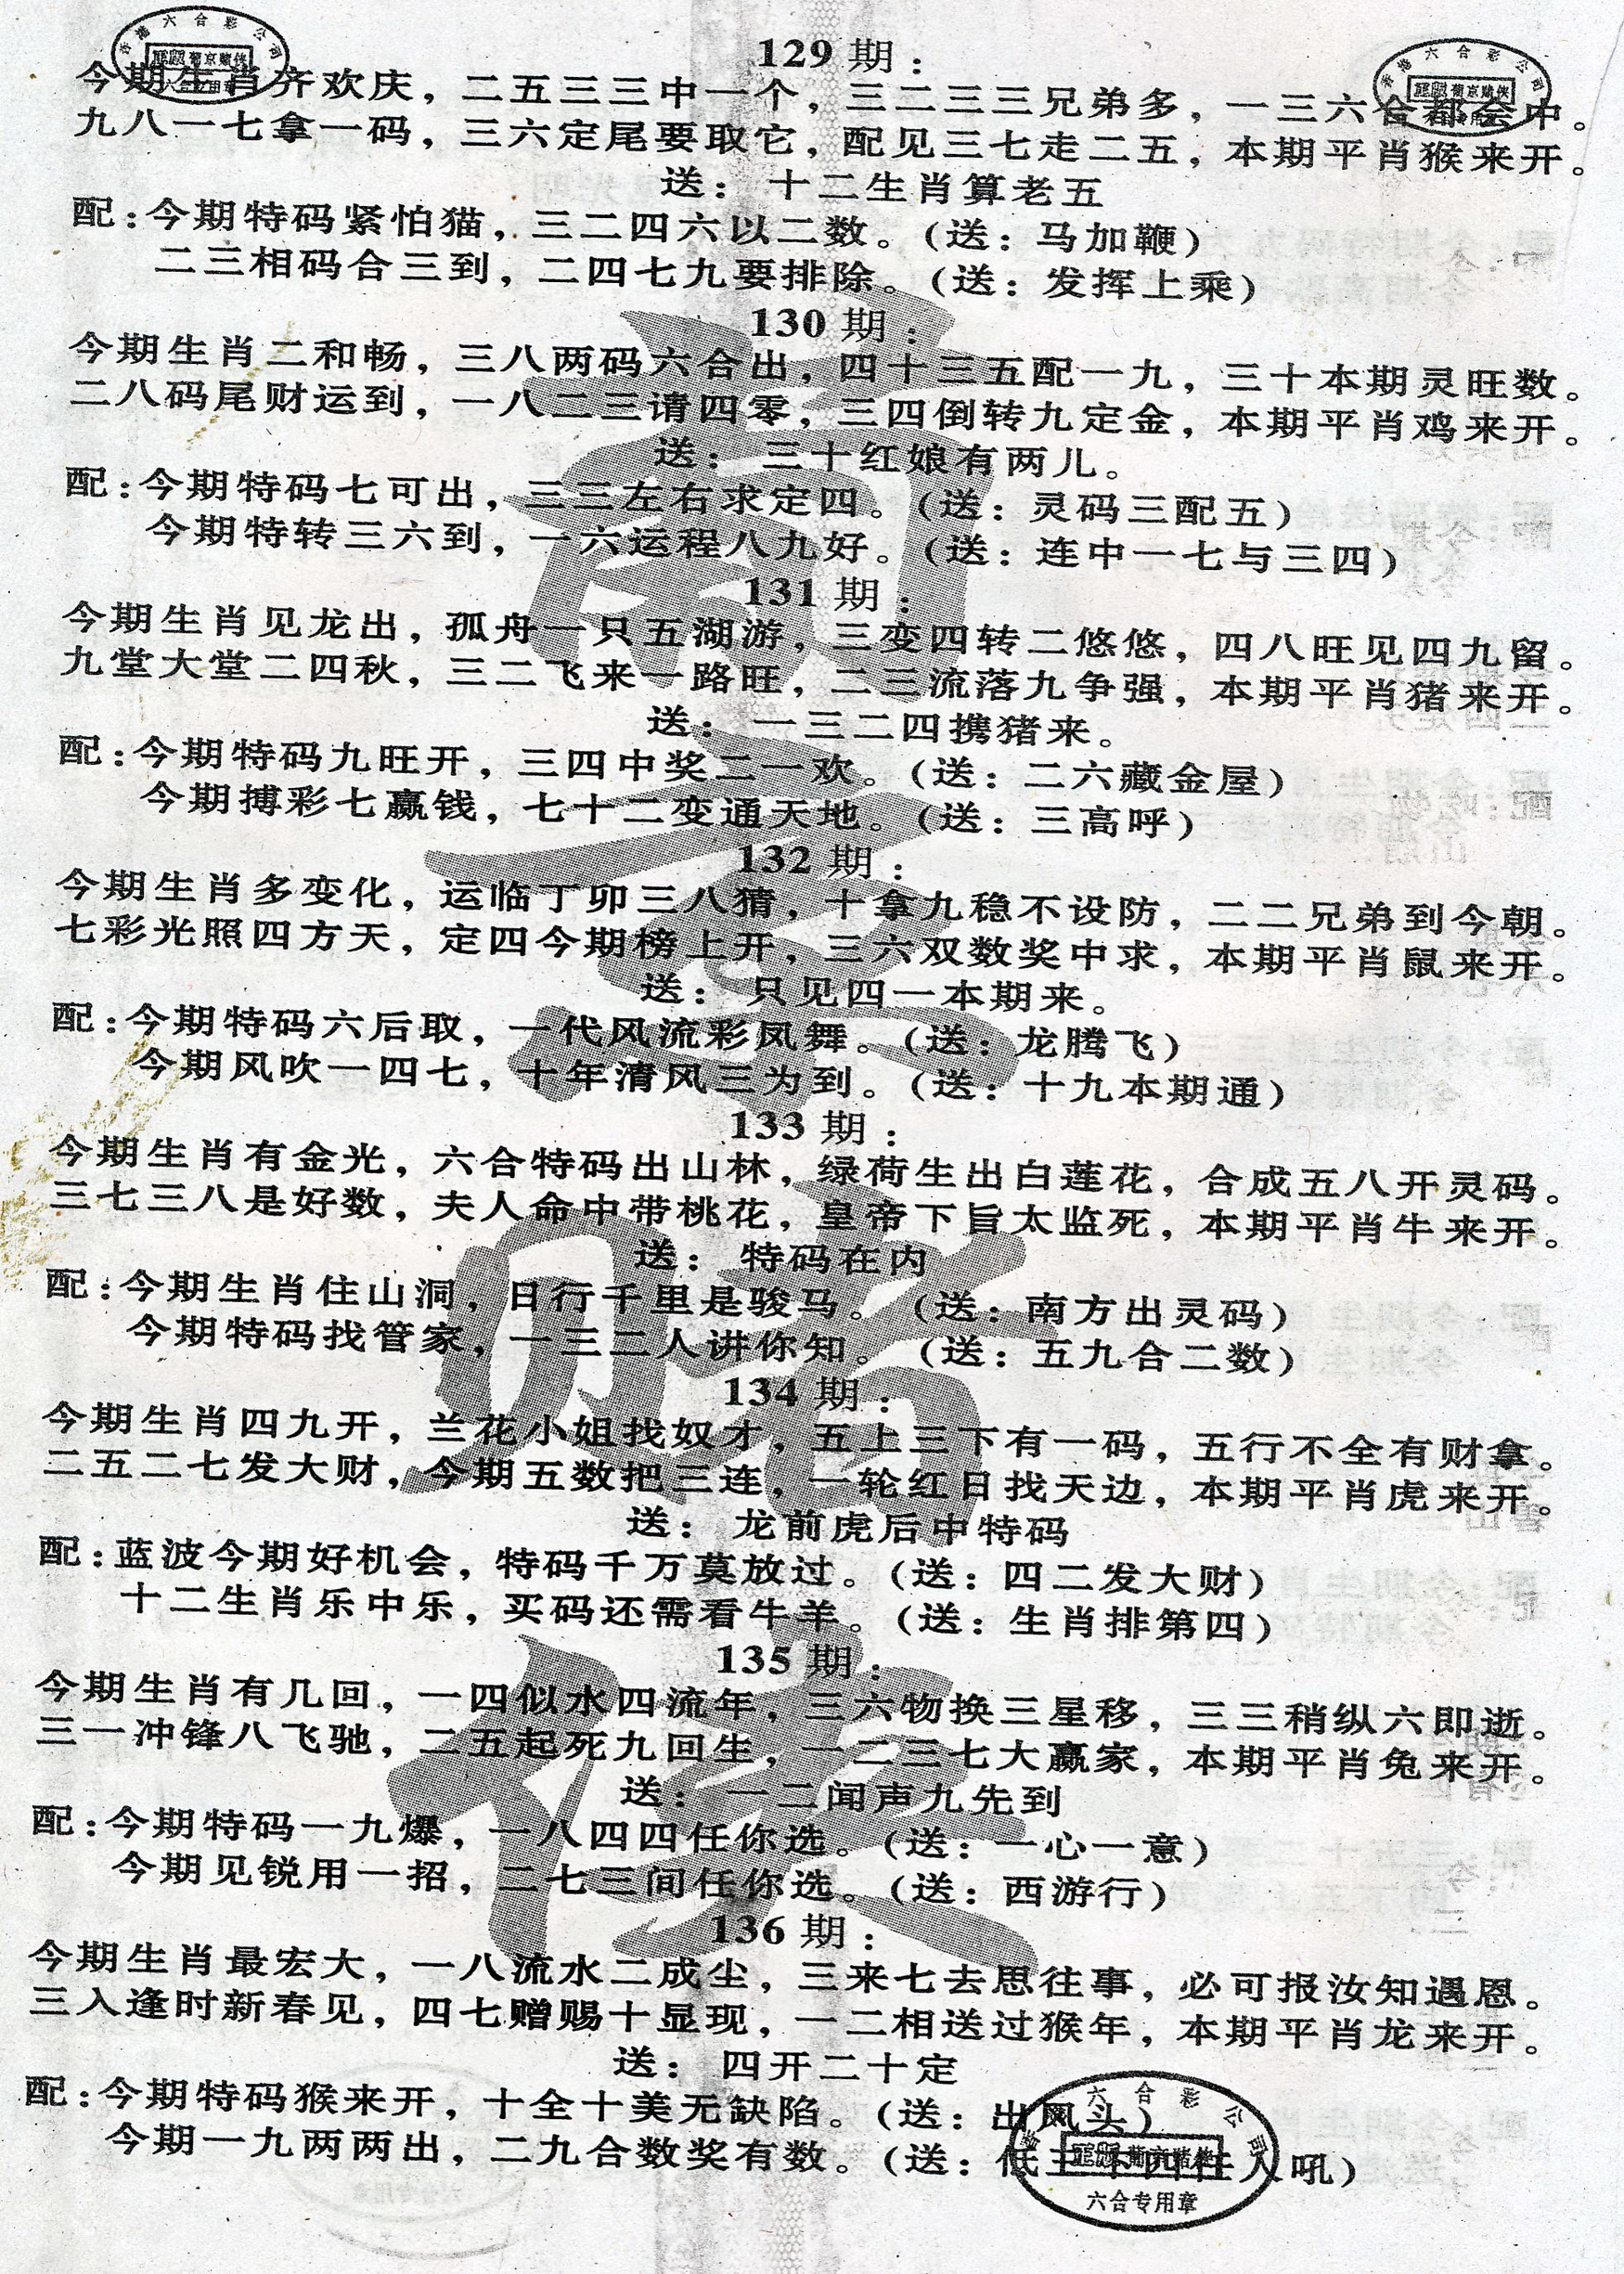 129 期：
今期生肖齐欢庆，二五三三中一个，三二三三兄弟多，一三六合都会中。
九八一七拿一码，三六定尾要取它，配见三七走二五，本期平肖猴来开。
送： 十二生肖算老五
配：今期特码紧怕猫，三二四六以二数。(送：马加鞭)
二三相码合三到，二四七九要排除。(送：发挥上乘)
130 期：
今期生肖二和畅，三八两码六合出，四十三五配一九，三十本期灵旺数。
二八码尾财运到，一八二三请四零，三四倒转九定金，本期平肖鸡来开。
送： 三十红娘有两儿。
配：今期特码七可出，三三左右求定四。(送：灵码三配五)
今期特转三六到，一六运程八九好。(送：连中一七与三四)
131 期：
今期生肖见龙出，孤舟一只五湖游，三变四转二悠悠，四八旺见四九留。
九堂大堂二四秋，三二飞来一路旺，二三流落九争强，本期平肖猪来开。
送： 一三二四携猪来。
配：今期特码九旺开，三四中奖二一欢。(送：二六藏金屋)
今期搏彩七赢钱，七十二变通天地。(送：三高呼)
132 期：
今期生肖多变化，运临丁卯三八猜，十拿九稳不设防，二二兄弟到今朝。
七彩光照四方天，定四今期榜上开，三六双数奖中求，本期平肖鼠来开。
送： 只见四一本期来。
配：今期特码六后取，一代风流彩凤舞。(送：龙腾飞)
今期风吹一四七，十年清风三为到。(送：十九本期通)
133 期：
今期生肖有金光，六合特码出山林，绿荷生出白莲花，合成五八开灵码。
三七三八是好数，夫人命中带桃花，皇帝下旨太监死，本期平肖牛来开。
送： 特码在内
配：今期生肖住山洞，日行千里是骏马。(送：南方出灵码)
今期特码找管家，一三二人讲你知。(送：五九合二数)
134 期：
今期生肖四九开，兰花小姐找奴才，五上三下有一码，五行不全有财拿。
二五二七发大财，今期五数把三连，一轮红日找天边，本期平肖虎来开。
送： 龙前虎后中特码
配：蓝波今期好机会，特码千万莫放过。(送：四二发大财)
十二生肖乐中乐，买码还需看牛羊。(送：生肖排第四)
135 期：
今期生肖有几回，一四似水四流年，三六物换三星移，三三稍纵六即逝。
三一冲锋八飞驰，二五起死九回生，一二三七大赢家，本期平肖兔来开。
送： 一二闻声九先到
配：今期特码一九爆，一八四四任你选。(送：一心一意)
今期见锐用一招，二七三间任你选。(送：西游行)
136 期：
今期生肖最宏大，一八流水二成尘，三来七去思往事，必可报汝知遇恩。
三入逢时新春见，四七赠赐十显现，一二相送过猴年，本期平肖龙来开。
送： 四开二十定
配：今期特码猴来开，十全十美无缺陷。(送：出风头)
今期一九两两出，二九合数奖有数。(送：低 人吼)
六合专用章